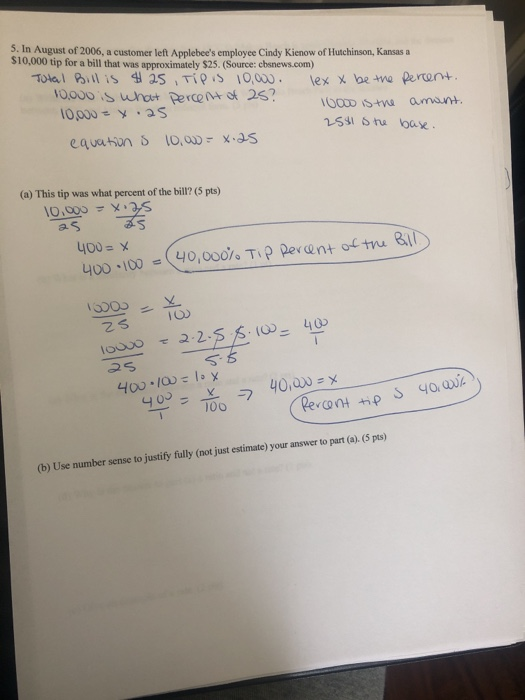 5. In August of 2006, a customer left Applebee's employee Cindy Kienow of Hutchinson, Kansas a
$10,000 tip for a bill that was approximately $25. (Source: cbsnews.com)
Total Bill is $25, Tip is 10,000. lex x be the Percent.
10,000 is what percent of 25? 10000 is the amount.
10,000 = x · 25 25$1 is the base.
equation is 10,000 = x·25
(a) This tip was what percent of the bill? (5 pts)
10,000/25 = x·25/25
400 = x
400·100 = 40,000% Tip Percent of the Bill
10000/25 = x/100
10000/25 = 2·2·5·5·100/5·5 = 400/1
400·100 = 1·x
400/1 = x/100 ⇒ 40,000 = x
Percent tip is 40,000%
(b) Use number sense to justify fully (not just estimate) your answer to part (a). (5 pts)